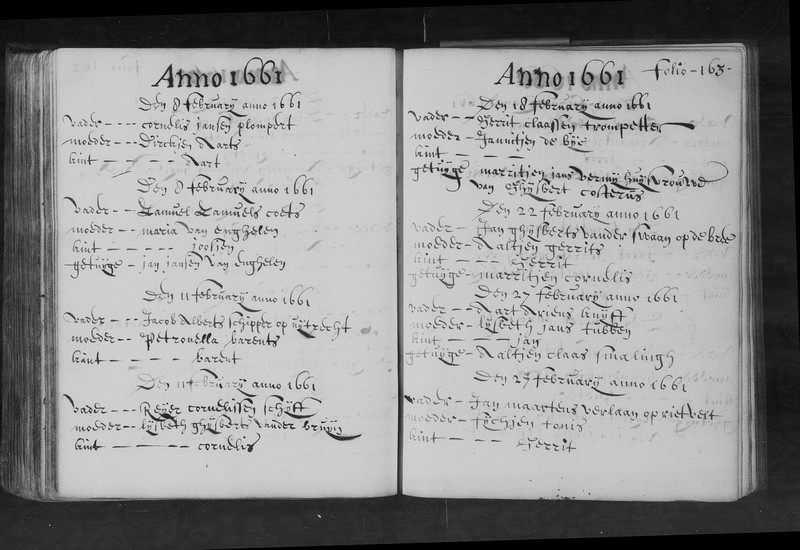 Anno 1661
Den 8 february anno 1661
vader - - - - cornelis jansen plompert
moeder - - - Dirckjen Aarts
kint - - - - - Aart
Den 8 february anno 1661
vader - - Samuel Samuels coets
moeder - - maria van enghelen
kint - - - - - joosjen
getuyge - jan jansen van enghelen
Den 11 february anno 1661
vader - - - Jacob Alberts schipper op uytrecht
moeder - - Petronella barents
kint - - - - - barent
Den 11 february anno 1661
vader - - - Reyer cornelissen schyff
moeder - - lysbeth ghysberts vander bruyn
kint - - - - - cornelis
Anno 1661 folio - 163 -
Den 18 february anno 1661
vader - - Gerrit claassen trompetter
moeder - Jannitjen de bye
kint - - - -
getuyge - marritjen jans vermy huysvrouwe
van Ghysbert costerus
Den 22 february anno 1661
vader - - Jan ghysberts vander swaan op de bree
moeder - Aaltjen gerrits
kint - - - - Gerrit
getuyge - marritjen cornelis
Den 27 february anno 1661
vader - - Aart Ariens knyff
moeder - lysbeth jans tubben
kint - - - - - jan
getuyge - Aaltjen claas smalingh
Den 27 february anno 1661
vader - - Jan maartens verlaan op rietvelt
moeder - fychjen tonis
kint - - - - Gerrit